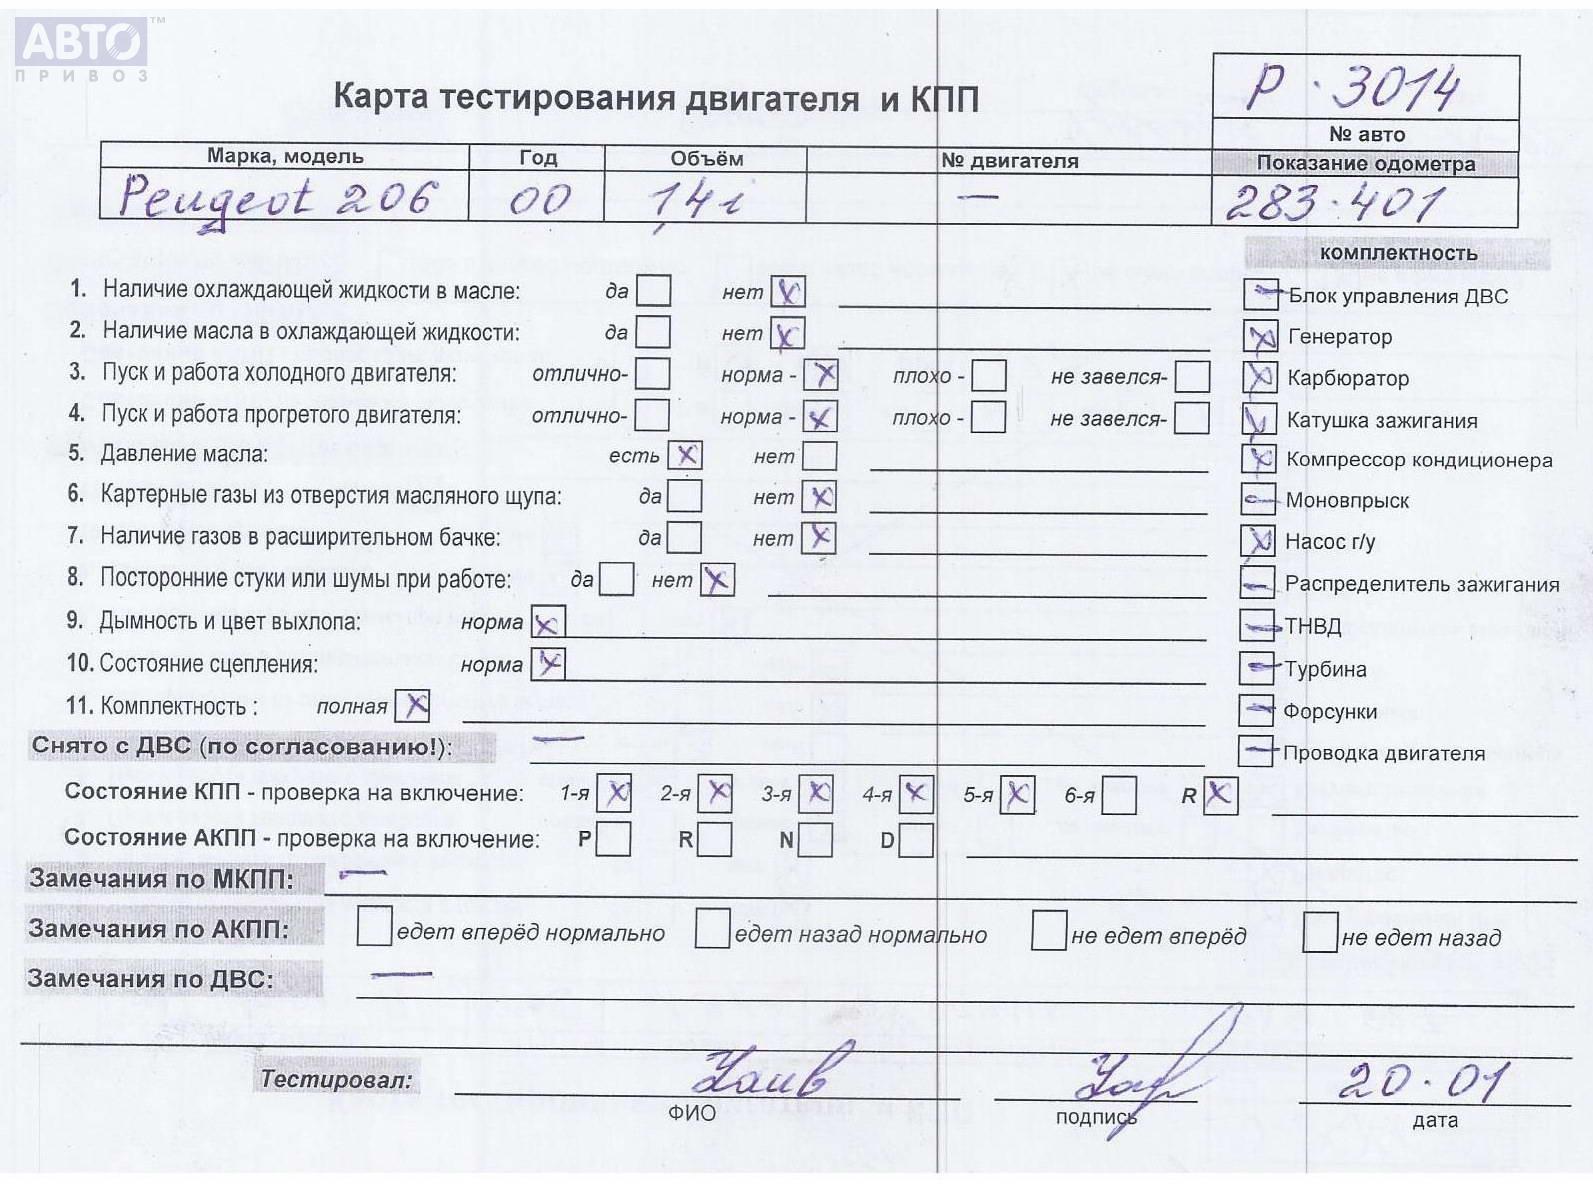 АВТО™
ПРИВОЗ
Карта тестирования двигателя и КПП
P · 3014
№ авто
Марка, модель Год Объём № двигателя Показание одометра
Peugeot 206 00 1,4i — 283·401
комплектность
1. Наличие охлаждающей жидкости в масле: да нет X
2. Наличие масла в охлаждающей жидкости: да нет X
3. Пуск и работа холодного двигателя: отлично- норма - X плохо - не завелся-
4. Пуск и работа прогретого двигателя: отлично- норма - X плохо - не завелся-
5. Давление масла: есть X нет
6. Картерные газы из отверстия масляного щупа: да нет X
7. Наличие газов в расширительном бачке: да нет X
8. Посторонние стуки или шумы при работе: да нет X
9. Дымность и цвет выхлопа: норма X
10. Состояние сцепления: норма X
11. Комплектность : полная X
— Блок управления ДВС
X Генератор
X Карбюратор
X Катушка зажигания
X Компрессор кондиционера
— Моновпрыск
X Насос г/у
— Распределитель зажигания
— ТНВД
— Турбина
— Форсунки
— Проводка двигателя
Снято с ДВС (по согласованию!): —
Состояние КПП - проверка на включение: 1-я X 2-я X 3-я X 4-я X 5-я X 6-я R X
Состояние АКПП - проверка на включение: P R N D
Замечания по МКПП: —
Замечания по АКПП: едет вперёд нормально едет назад нормально не едет вперёд не едет назад
Замечания по ДВС: —
Тестировал: 20·01
ФИО подпись дата